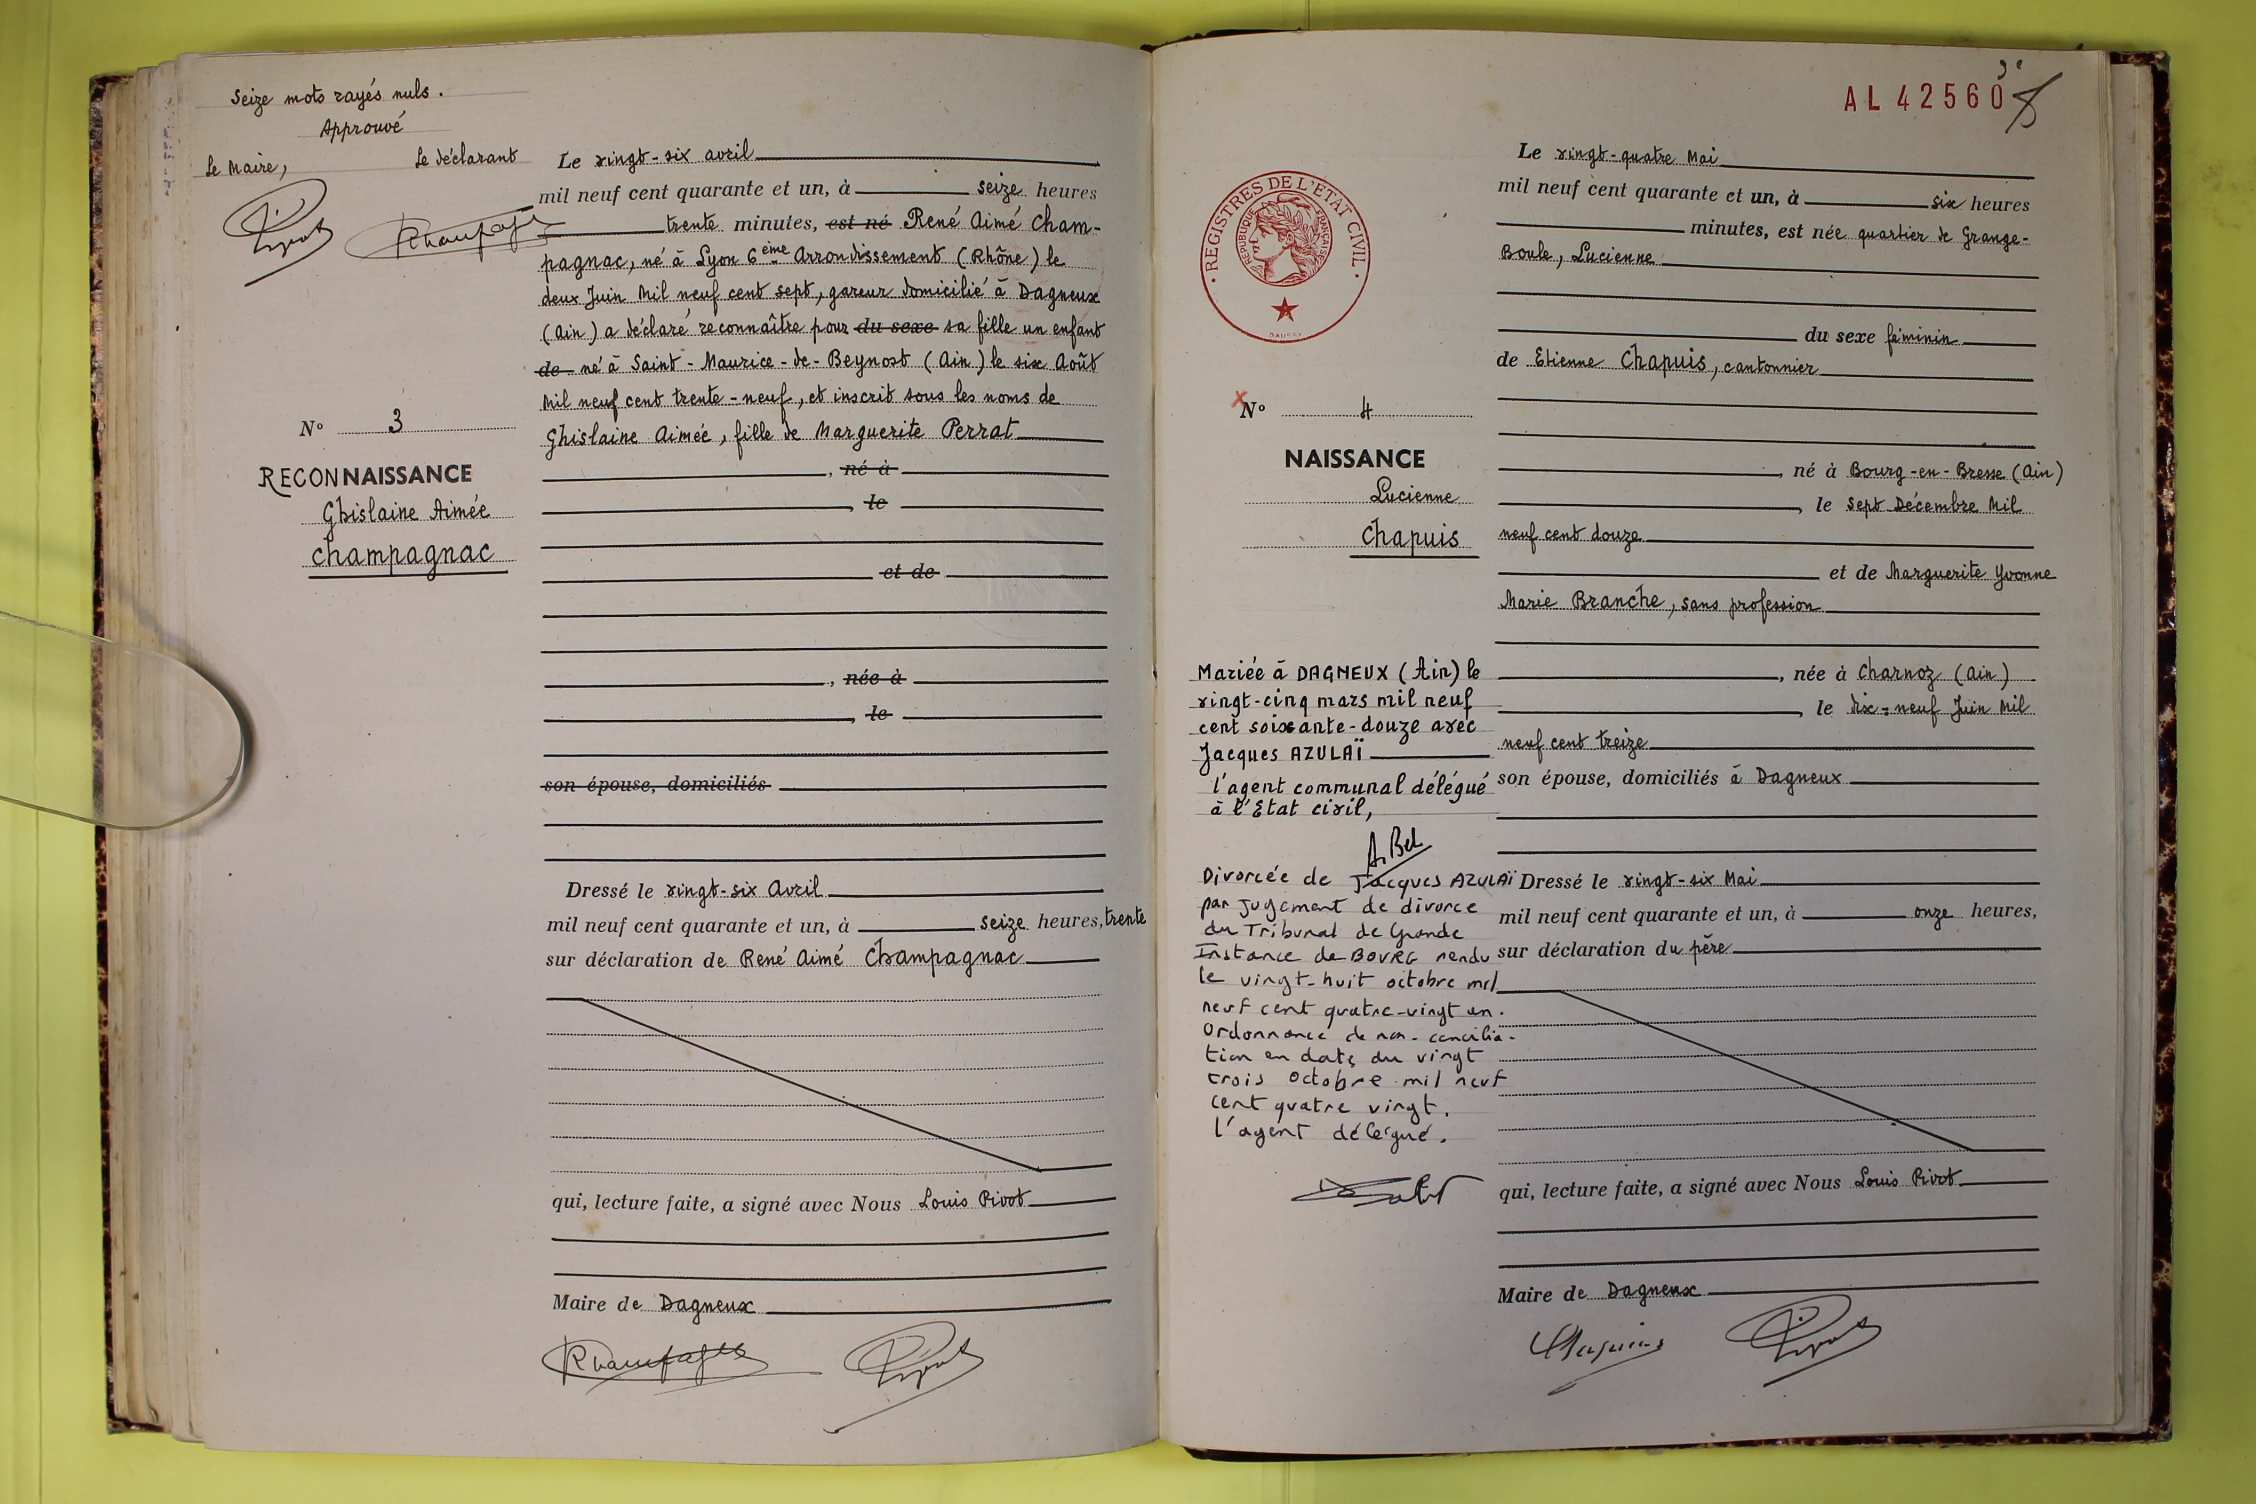 Seize mots rayés nuls.
Approuvé
Le Maire, Le déclarant
Le vingt-six avril
mil neuf cent quarante et un, à seize heures
trente minutes, est né René Aimé Cham-
pagnac, né à Lyon 6ème Arrondissement (Rhône) le
deux Juin Mil neuf cent sept, gareur domicilié à Dagneux
(Ain) a déclaré reconnaître pour du sexe sa fille un enfant
de né à Saint-Maurice-de-Beynost (Ain) le six Août
Mil neuf cent trente-neuf, et inscrit sous les noms de
Ghislaine Aimée, fille de Marguerite Perrat
N° 3
RECONNAISSANCE
Ghislaine Aimée
Champagnac
, né à
, le
et de
, née à
, le
son épouse, domiciliés
Dressé le vingt-six Avril
mil neuf cent quarante et un, à seize heures, trente
sur déclaration de René Aimé Champagnac
qui, lecture faite, a signé avec Nous Louis Pivot
Maire de Dagneux
AL 42560
REGISTRES DE L'ETAT CIVIL
REPUBLIQUE FRANÇAISE
Le vingt-quatre Mai
mil neuf cent quarante et un, à six heures
minutes, est née quartier de Grange-
Boule, Lucienne
du sexe féminin
de Etienne Chapuis, cantonnier
N° 4
NAISSANCE
Lucienne
Chapuis
, né à Bourg-en-Bresse (Ain)
, le sept Décembre Mil
neuf cent douze
et de Marguerite Yvonne
Marie Branche, sans profession
, née à Charnoz (Ain)
, le dix-neuf Juin Mil
neuf cent treize
son épouse, domiciliés à Dagneux
Mariée à DAGNEUX (Ain) le
vingt-cinq mars mil neuf
cent soixante-douze avec
Jacques AZULAÏ
l'agent communal délégué
à l'Etat civil,
A. Bel
Divorcée de Jacques AZULAÏ
par jugement de divorce
du Tribunal de Grande
Instance de BOURG rendu
le vingt-huit octobre mil
neuf cent quatre-vingt un.
Ordonnance de non-concilia-
tion en date du vingt
trois octobre mil neuf
cent quatre vingt.
l'agent délégué.
Dressé le vingt-six Mai
mil neuf cent quarante et un, à onze heures,
sur déclaration du père
qui, lecture faite, a signé avec Nous Louis Pivot
Maire de Dagneux